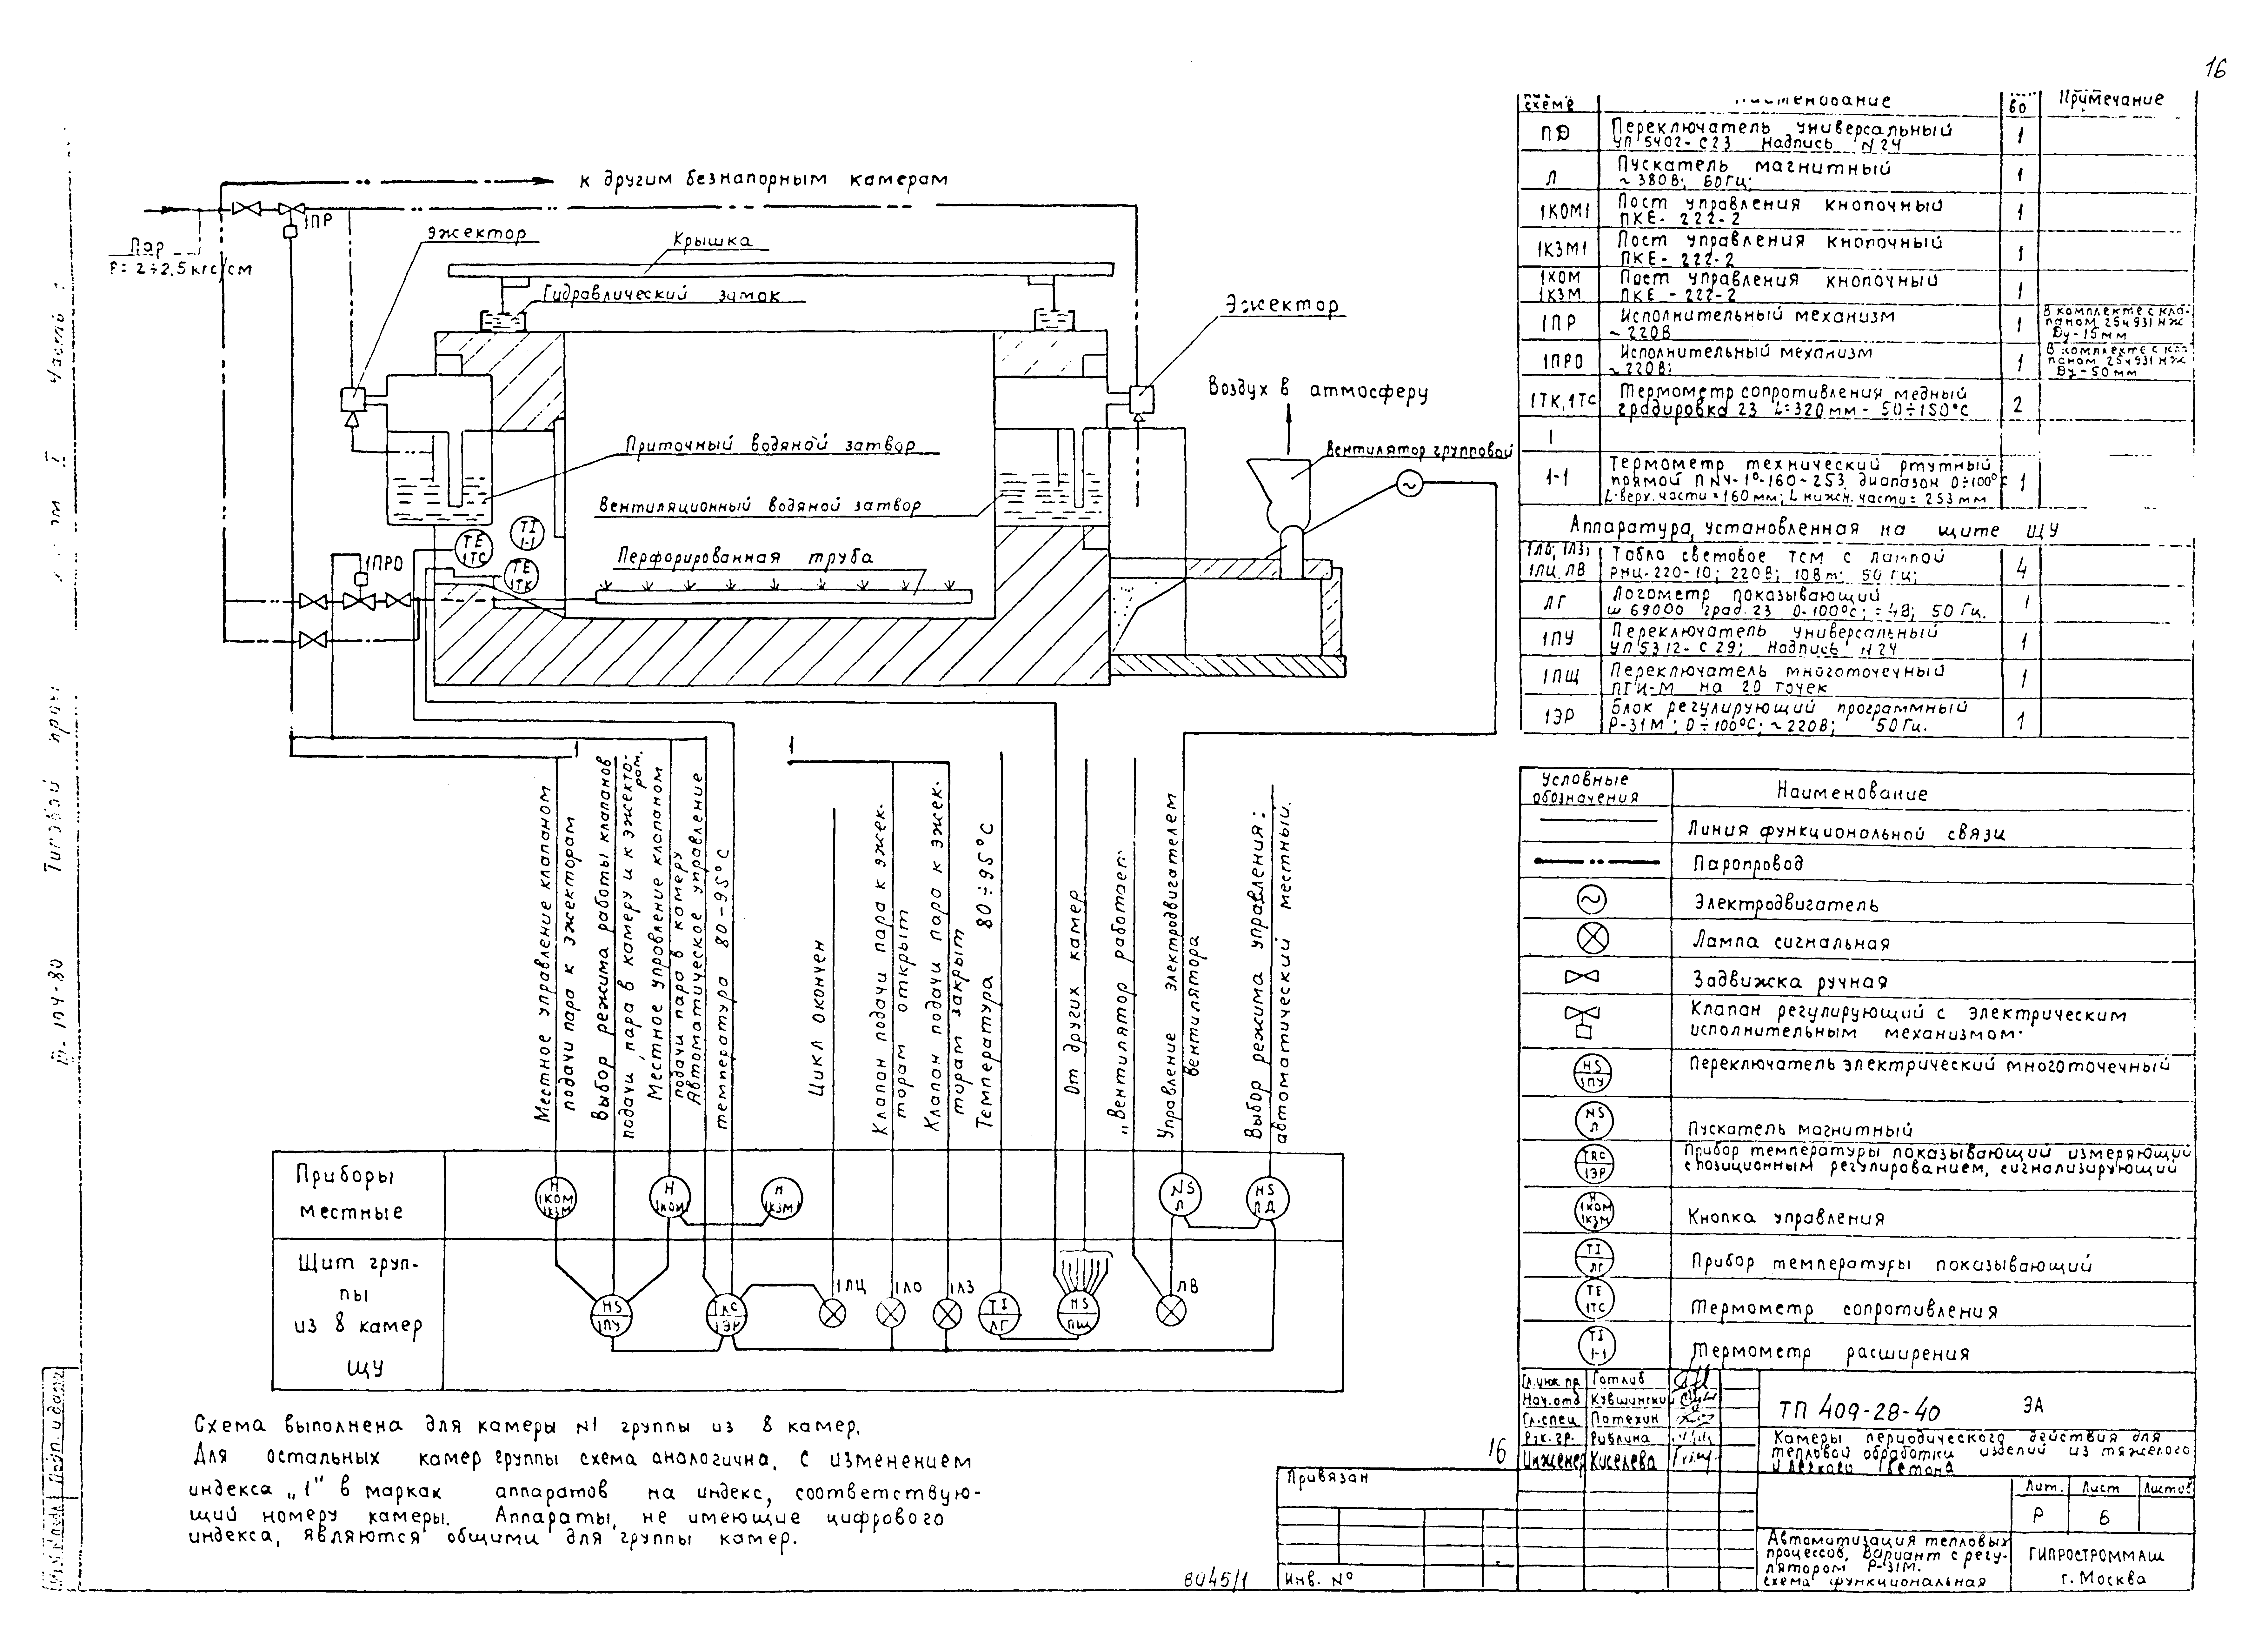 16
к другим безнапорным камерам
1ПР
Пар
Р=2÷2,5 кгс/см
эжектор
Крышка
Гидравлический замок
Эжектор
Воздух в атмосферу
Вентилятор групповой
Приточный водяной затвор
Вентиляционный водяной затвор
Перфорированная труба
TE
1ТС
TI
1-1
TE
1ТК
1ПРО
1
1
Местное управление клапаном
подачи пара к эжекторам
Выбор режима работы клапанов
подачи пара в камеру и к эжекто-
рам.
Местное управление клапаном
подачи пара в камеру
Автоматическое управление
температура 80-95°С
Цикл окончен
Клапан подачи пара к эжек-
торам открыт
Клапан подачи пара к эжек-
торам закрыт
Температура 80÷95°С
От других камер
„Вентилятор работает"
Управление электродвигателем
вентилятора
Выбор режима управления:
автоматический местный.
Приборы
местные
H
1КОМ
1КЗМ
H
1КОМ1
H
1КЗМ1
NS
Л
HS
ПД
Щит груп-
пы
из 8 камер
ЩУ
HS
1ПУ
1ЭР
1ЛЦ
1ЛО
1ЛЗ
TI
ЛГ
HS
ПЩ
ЛВ
Схема выполнена для камеры N1 группы из 8 камер.
Для остальных камер группы схема аналогична, с изменением
индекса „1" в марках аппаратов на индекс, соответствую-
щий номеру камеры. Аппараты, не имеющие цифрового
индекса, являются общими для группы камер.
схеме Наименование во Примечание
ПД Переключатель универсальный
УП 5402-С23 Надпись N24 1
Л Пускатель магнитный
~380В; 60Гц; 1
1КОМ1 Пост управления кнопочный
ПКЕ-222-2 1
1КЗМ1 Пост управления кнопочный
ПКЕ-222-2 1
1КОМ
1КЗМ Пост управления кнопочный
ПКЕ-222-2 1
1ПР Исполнительный механизм
~220В 1 В комплекте с кла-
паном 25ч931нж
Ду-15мм
1ПРО Исполнительный механизм
~220В; 1 В комплекте с кла-
паном 25ч931нж
Ду-50мм
1ТК,1ТС Термометр сопротивления медный
градировка 23 L=320мм-50÷150°С 2
1
1-1 Термометр технический ртутный
прямой ПN4-1°-160-253, диапазон 0÷100°С 1
L верх. части=160мм; L нижн. части=253мм
Аппаратура, установленная на щите ЩУ
1ЛО, 1ЛЗ,
1ЛЦ, ЛВ Табло световое ТСМ с лампой
РНЦ-220-10; 220В; 10Вт; 50Гц; 4
ЛГ Логометр показывающий
Ш69000 град.23 0-100°С; =4В; 50Гц. 1
1ПУ Переключатель универсальный
УП5312-С29; Надпись N24 1
1ПЩ Переключатель многоточечный
ПГИ-М на 20 точек 1
1ЭР Блок регулирующий программный
Р-31М; 0÷100°С; ~220В; 50Гц. 1
Условные
обозначения Наименование
Линия функциональной связи
Паропровод
Электродвигатель
Лампа сигнальная
Задвижка ручная
Клапан регулирующий с электрическим
исполнительным механизмом.
HS
1ПУ Переключатель электрический многоточечный
NS
Л Пускатель магнитный
TRC
1ЭР Прибор температуры показывающий измеряющий
с позиционным регулированием, сигнализирующий
H
1КОМ
1КЗМ Кнопка управления
TI
ЛГ Прибор температуры показывающий
TE
1ТС Термометр сопротивления
TI
1-1 Термометр расширения
Гл.инж.пр. Готлиб
Нач.отд Кувшинский
Гл.спец Потехин
Рук.гр. Ривлина
Инженер Киселева
ТП 409-28-40 ЭА
Камеры периодического действия для
тепловой обработки изделий из тяжелого
и легкого бетона
Лит. Лист Листов
Р 6
Автоматизация тепловых
процессов. Вариант с регу-
лятором Р-31М.
схема функциональная
ГИПРОСТРОММАШ
г. Москва
16
Привязан
Инв. №
8045/1